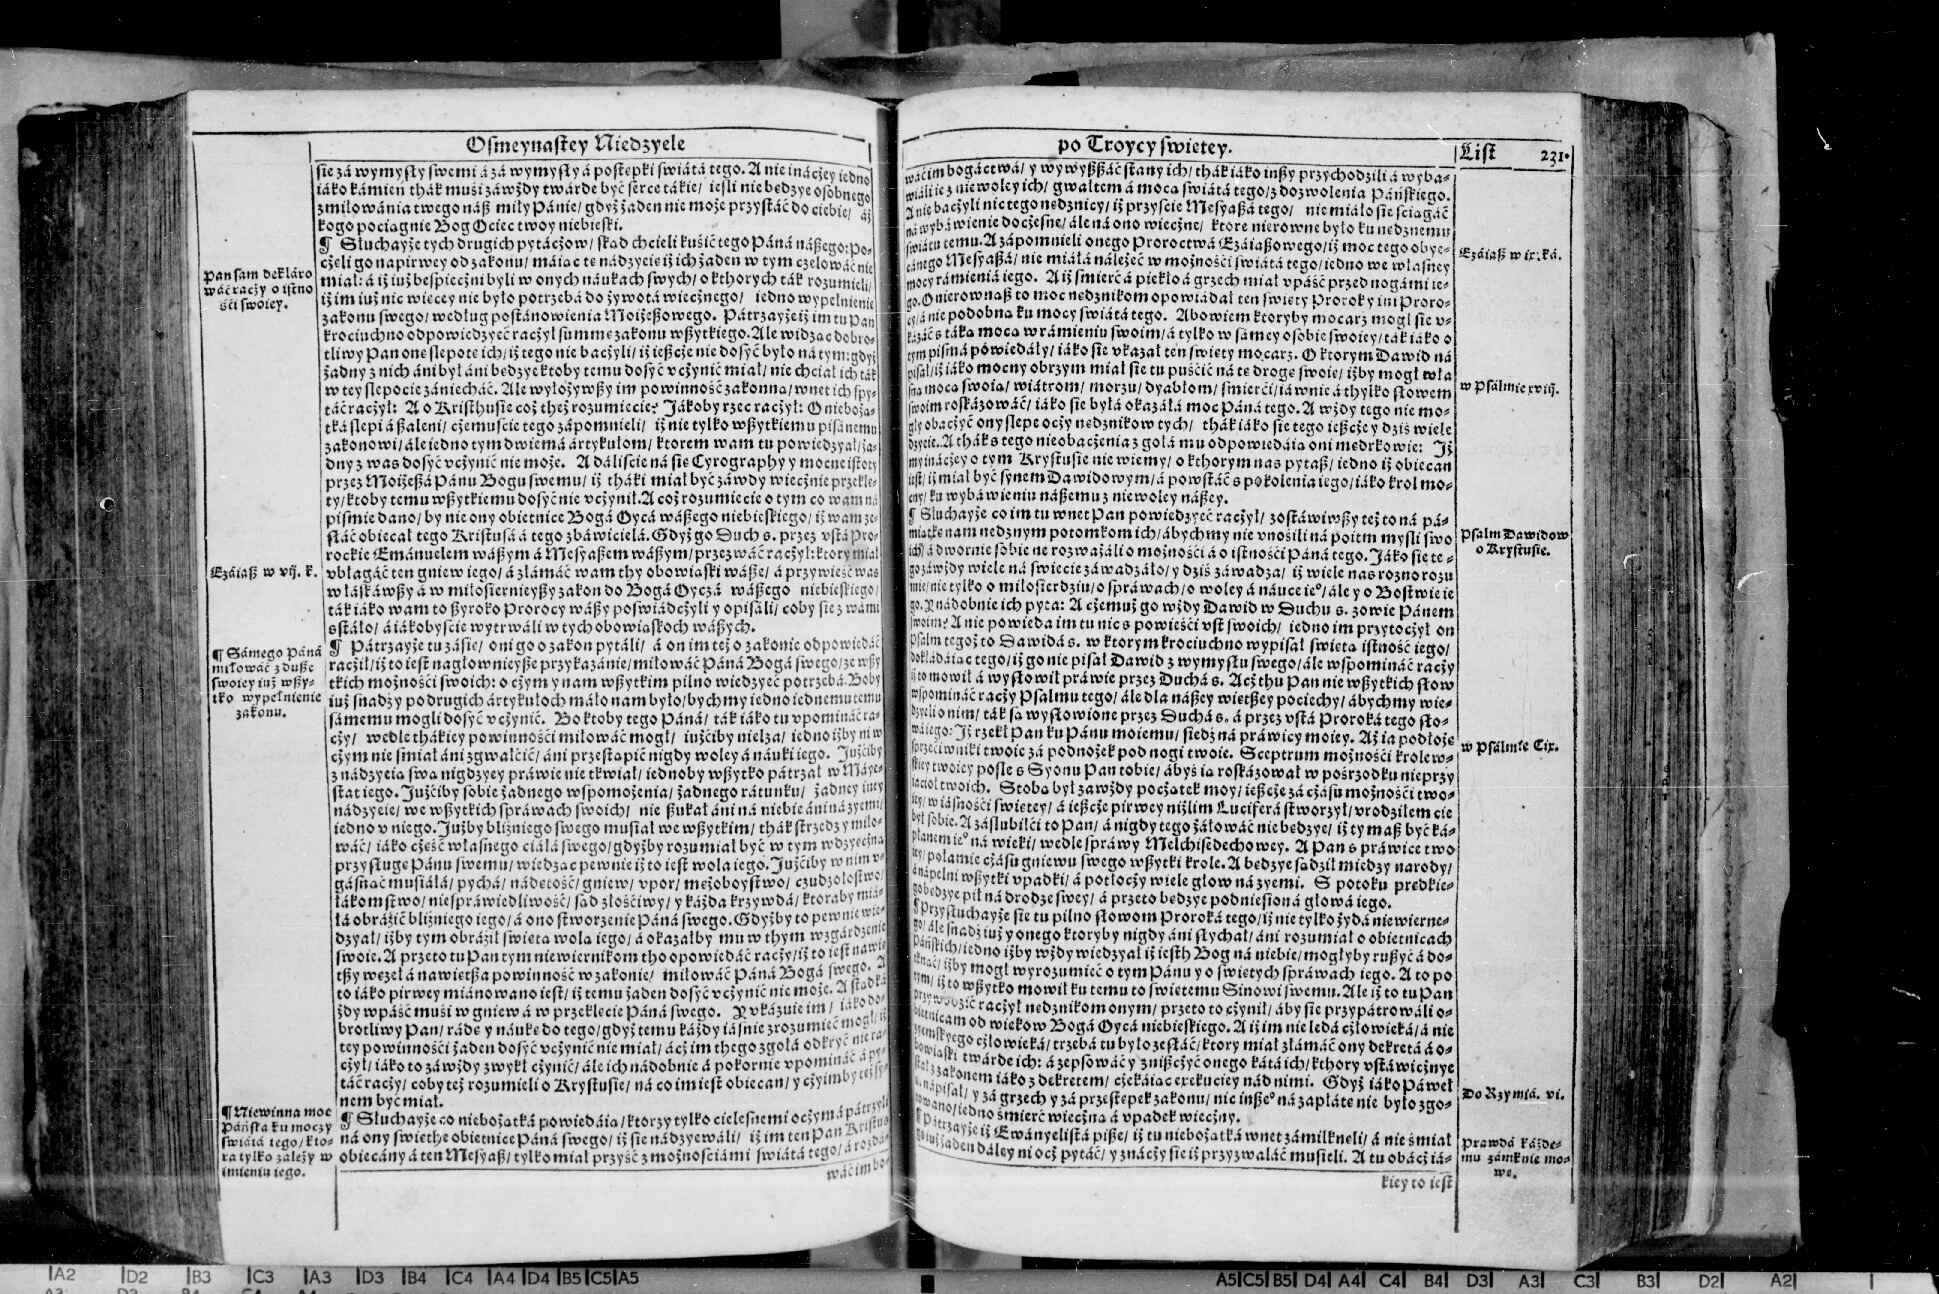 Osmeynastey Niedzyele
sie zá wymysły swemi á zá wymysły á postępki swiátá tego. A nie ináczey iedno
iáko kámień thák muśi záwżdy twárde być serce tákie/ iesli nie bedzye osobnego
zmiłowánia twego náß miły Pánie/ gdyż żaden nie może przystáć do ciebie/ áż
kogo pociągnie Bog Ociec twoy niebieski.
¶ Słuchayże tych drugich pytáczow/ skąd chcieli kuśić tego Páná nášego: Po-
częli go napirwey od zakonu/ máiąc tę nádzyeię iż ich żaden w tym czelowáć nie
miał: á iż iuż bespieczni byli w onych náukach swych/ o kthorych ták rozumieli/
iż im iuż nic wiecey nie było potrzebá do żywotá wiecznego/ iedno wypełnienie
zakonu swego/ według postánowienia Moiżeßowego. Pátrzayże iż im tu Pan
krociuchno odpowiedzyeć raczył summę zakonu wßytkiego. Ale widząc dobro-
tliwy Pan onę slepotę ich/ iż tego nie baczyli/ iż iescze nie dosyć było ná tym: gdyż
żadny z nich áni był áni bedzye ktoby temu dosyć vczynić miał/ nie chciał ich ták
w tey slepocie zániecháć. Ale wyłożywßy im powinność zakonną/ wnet ich spy-
táć raczył: A o Kristhusie coż też rozumiecie? Jákoby rzec raczył: O niebożą-
tká slepi á ßaleni/ czemuście tego zápomnieli/ iż nie tylko wßytkiemu pisánemu
zakonowi/ ále iedno tym dwiemá ártykułom/ ktorem wam tu powiedzyał/ ża-
dny z was dosyć vczynić nie może. A daliście ná się Cyrography y mocne istoty
przez Moiżeßá Pánu Bogu swemu/ iż tháki miał być záwdy wiecznie przeklę-
ty/ ktoby temu wßytkiemu dosyć nie vczynił. A coż rozumiecie o tym co wam ná
piśmie dano/ by nie ony obietnice Bogá Oycá wáßego niebieskiego/ iż wam ze-
słáć obiecał tego Kristusá á tego zbáwicielá. Gdyż go Duch s. przez vstá Pro-
rockie Emánuelem wáßym á Mesyaßem wáßym/ przezwáć raczył: ktory miał
vbłagáć ten gniew iego/ á złamáć wam thy obowiąski wáße/ á przywieść was
w łáskáwßy á w miłosiernieyßy zakon do Bogá Oyczá wáßego niebieskiego/
ták iáko wam to ßyroko Prorocy wáßy poświádczyli y opisáli/ coby się z wámi
sstáło/ á iákobyście wytrwáli w tych obowiąskoch wáßych.
¶ Pátrzayże tu zásię/ oni go o zakon pytáli/ á on im też o zakonie odpowiedáć
raczył/ iż to iest nagłownieyße przykazánie/ miłowáć Páná Bogá swego/ ze wßy
tkich możności swoich: o czym y nam wßytkim pilno wiedzyeć potrzebá. Boby
iuż snadź y po drugich ártykułoch máło nam było/ bychmy iedno iednemu temu
sámemu mogli dosyć vczynić. Bo ktoby tego Páná/ ták iáko tu vpomináć ra-
czy/ wedle thákiey powinności miłowáć mogł/ iużciby nielza/ iedno iżby ni w
czym nie śmiał áni zgwałcić/ áni przestąpić nigdy woley á náuki iego. Jużciby
z nádzyeią swą nigdzyey práwie nie tkwiał/ iednoby wßytko pátrzał w Máye-
stat iego. Jużciby sobie żadnego wspomożenia/ żadnego rátunku/ żadney iney
nádzyeie/ we wßytkich spráwach swoich/ nie ßukał áni ná niebie áni ná zyemi/
iedno v niego. Jużby bliźniego swego musiał we wßytkim/ thák strzedz y miło-
wáć/ iáko część własnego ciáłá swego/ gdyżby rozumiał być w tym wdzyeczną
przysługę Pánu swemu/ wiedząc pewnie iż to iest wola iego. Jużciby w nim v-
gásnąć musiáłá/ pychá/ nádętość/ gniew/ vpor/ mężoboystwo/ czudzołostwo/
łákomstwo/ niespráwiedliwość/ sąd złościwy/ y káżda krzywdá/ ktoraby mia-
łá obráźić bliźniego iego/ á ono stworzenie Páná swego. Gdyżby to pewnie wie-
dzyał/ iżby tym obráźił świętą wolą iego/ á okazałby mu w thym wzgárdzenie
swoie. A przeto tu Pan tym niewiernikom tho opowiedáć raczy/ iż to iest nawię
tßy węzeł á nawiętßa powinność w zakonie/ miłowáć Páná Bogá swego. A
to iáko pirwey miánowano iest/ iż temu żaden dosyć vczynić nie może. A stąd ká
żdy wpáść muśi w gniew á w przeklęcie Páná swego. Y vkázuie im/ iáko do-
brotliwy Pan/ rádę y náukę do tego/ gdyż temu káżdy iásnie zrozumieć mogł/ iż
tey powinności żaden dosyć vczynić nie miał/ ácż im thego zgołá odkryć nie ra-
czył/ iáko to záwżdy zwykł czynić/ ále ich nadobnie á pokornie vpomináć á py-
táć raczy/ coby też rozumieli o Krystusie/ ná co im iest obiecan/ y czyimby też sy-
nem być miał.
¶ Słuchayże co niebożątká powiedáią/ ktorzy tylko cielesnemi oczymá pátrzyli
ná ony swiethe obietnice Páná swego/ iż się nádzyewáli/ iż im ten Pan Kristus
obiecány á ten Mesyaß/ tylko miał przyść z możnościámi swiátá tego/ á rozdá-
wáć im bo-
Pan sam dekláro
wáć raczy o istno
ści swoiey.
Ezáiaß w vij. k.
¶ Sámego Páná
miłowáć z duße
swoiey iuż wßy-
tko wypełnienie
zakonu.
¶ Niewinna moc
Páńska ku moczy
swiátá tego/ kto-
ra tylko zależy w
imieniu iego.
po Troycy swietey.
List 231.
wáć im bogáctwá/ y wywyßßáć stany ich/ thák iáko inßy przychodzili á wyba-
wiáli ie z niewoley ich/ gwałtem á mocą swiátá tego/ z dozwolenia Páńskiego.
A nie baczyli nic tego nędznicy/ iż przyscie Mesyaßá tego/ nie miáło się ściągáć
ná wybáwienie doczesne/ ále ná ono wieczne/ ktore nierowne było ku nędznemu
swiátu temu. A zápomnieli onego Proroctwá Ezáiaßowego/ iż moc tego obye-
cánego Mesyaßá/ nie miáłá należeć w możności swiátá tego/ iedno we własney
mocy rámieniá iego. A iż śmierć á piekło á grzech miał vpáść przed nogámi ie-
go. O nierownąß to moc nędznikom opowiádał ten swięty Prorok y ini Proro-
cy/ á nie podobną ku mocy swiátá tego. Abowiem ktoryby mocarz mogł się v-
kázáć s táką mocą w rámieniu swoim/ á tylko w sámey osobie swoiey/ ták iáko o
tym pismá powiedáły/ iáko się vkazał ten swięty mocarz. O ktorym Dawid ná
pisał/ iż iáko mocny obrzym miał się tu puścić ná tę drogę swoię/ iżby mogł wła
sną mocą swoią/ wiátrom/ morzu/ dyabłom/ śmierci/ iáwnie á thylko słowem
swoim roskázowáć/ iáko się byłá okazáłá moc Páná tego. A wżdy tego nie mo-
gły obaczyć ony slepe oczy nędznikow tych/ thák iáko się tego iescze y dziś wiele
dzyeie. A thák s tego nieobaczenia z gołá mu odpowiedáią oni mędrkowie: Iż
my ináczey o tym Krystusie nie wiemy/ o kthorym nas pytaß/ iedno iż obiecan
iest/ iż miał być synem Dawidowym/ á powstáć s pokolenia iego/ iáko krol mo-
cny/ ku wybáwieniu náßemu z niewoley náßey.
¶ Słuchayże co im tu wnet Pan powiedzyeć raczył/ zostáwiwßy też to ná pá-
miątkę nam nędznym potomkom ich/ ábychmy nie vnosili ná poitm myśli swo
ich/ á dwornie sobie ne rozważáli o możności á o istności Páná tego. Jáko się te-
go záwżdy wiele ná swiecie záwadzáło/ y dziś záwadza/ iż wiele nas rozno rozu
mie/ nie tylko o miłosierdziu/ o spráwach/ o woley á náuce ieº/ ále y o Bostwie ie
go. Y nadobnie ich pyta: A czemuż go wżdy Dawid w Duchu s. zowie Pánem
swoim? A nie powieda im tu nic s powieści vst swoich/ iedno im przytoczył on
Psalm tegoż to Dawidá s. w ktorym krociuchno wypisał swiętą istność iego/
dokłádáiąc tego/ iż go nie pisał Dawid z wymysłu swego/ ále wspomináć raczy
iż to mowił á wysłowił práwie przez Duchá s. Acż thu Pan nie wßytkich słow
wspomináć raczy Psalmu tego/ ále dla náßey więtßey pociechy/ ábychmy wie-
dzyeli o nim/ ták są wysłowione przez Duchá s. á przez vstá Proroká tego sło-
wá iego: Iż rzekł Pan ku Pánu moiemu/ siedź ná práwicy moiey. Aż ia podłożę
sprzeciwniki twoie zá podnożek pod nogi twoie. Sceptrum możności krolew-
skiey twoiey pośle s Syonu Pan tobie/ ábyś ią roskázował w pośrzodku nieprzy
iaciół twoich. Stobą był záwżdy początek moy/ iescze zá czásu możności two-
iey/ w iásności swiętey/ á iescze pirwey niżlim Luciferá stworzył/ vrodziłem cię
był sobie. A záslubiłći to Pan/ á nigdy tego żáłowáć nie bedzye/ iż ty maß być ká-
płanem ieº ná wieki/ wedle spráwy Melchisedechowey. A Pan s práwice two
iey/ połamie czásu gniewu swego wßytki krole. A bedzye sądził miedzy narody/
á nápełni wßytki vpadki/ á potłoczy wiele głow ná zyemi. S potoku prędkie-
go bedzye pił ná drodze swey/ á przeto bedzye podniesioná głowá iego.
¶ Przysłuchayże się tu pilno słowom Proroká tego/ iż nie tylko żydá niewierne-
go/ ále snadź iuż y onego ktoryby nigdy áni słychał/ áni rozumiał o obietnicach
Páńskich/ iedno iżby wżdy wiedzyał iż iesth Bog ná niebie/ mogłyby rußyć á do-
tknąć/ iżby mogł wyrozumieć o tym Pánu y o swiętych spráwach iego. A to po
tym/ iż to wßytko mowił ku temu to swiętemu Sinowi swemu. Ale iż to tu Pan
przywodzić raczył nędznikom onym/ przeto to czynił/ áby się przypátrowáli o-
bietnicam od wiekow Bogá Oycá niebieskiego. A iż im nie ledá człowieká/ á nie
zyemskyego człowieká/ trzebá tu było zesłáć/ ktory miał złamáć ony dekretá á o-
bowiąski twárde ich: á zepsowáć y zniszczyć onego kátá ich/ kthory vstáwicznye
stał z zakonem iáko z dekretem/ czekáiąc exekuciey nád nimi. Gdyż iáko Páweł
s. nápisał/ y zá grzech y zá przestępek zakonu/ nic inßeº ná zapłátę nie było zgo-
towano/ iedno śmierć wieczna á vpadek wieczny.
¶ Pátrzayże iż Ewányelistá piße/ iż tu niebożątká wnet zámilknęli/ á nie śmiał
go iuż żaden dáley ni ocż pytáć/ y znáczy się iż przyzwaláć musieli. A tu obacż iá-
kiey to iest
Ezáiaß w ix. ká.
w Psálmie xviij.
Psalm Dawidow
o Krystusie.
w Psálmie Cix.
Do Rzymiá. vi.
Prawdá káżde-
mu zámknie mo-
wę.
A2 D2 B3 C3 A3 D3 B4 C4 A4 D4 B5 C5 A5
A5 C5 B5 D4 A4 C4 B4 D3 A3 C3 B3 D2 A2